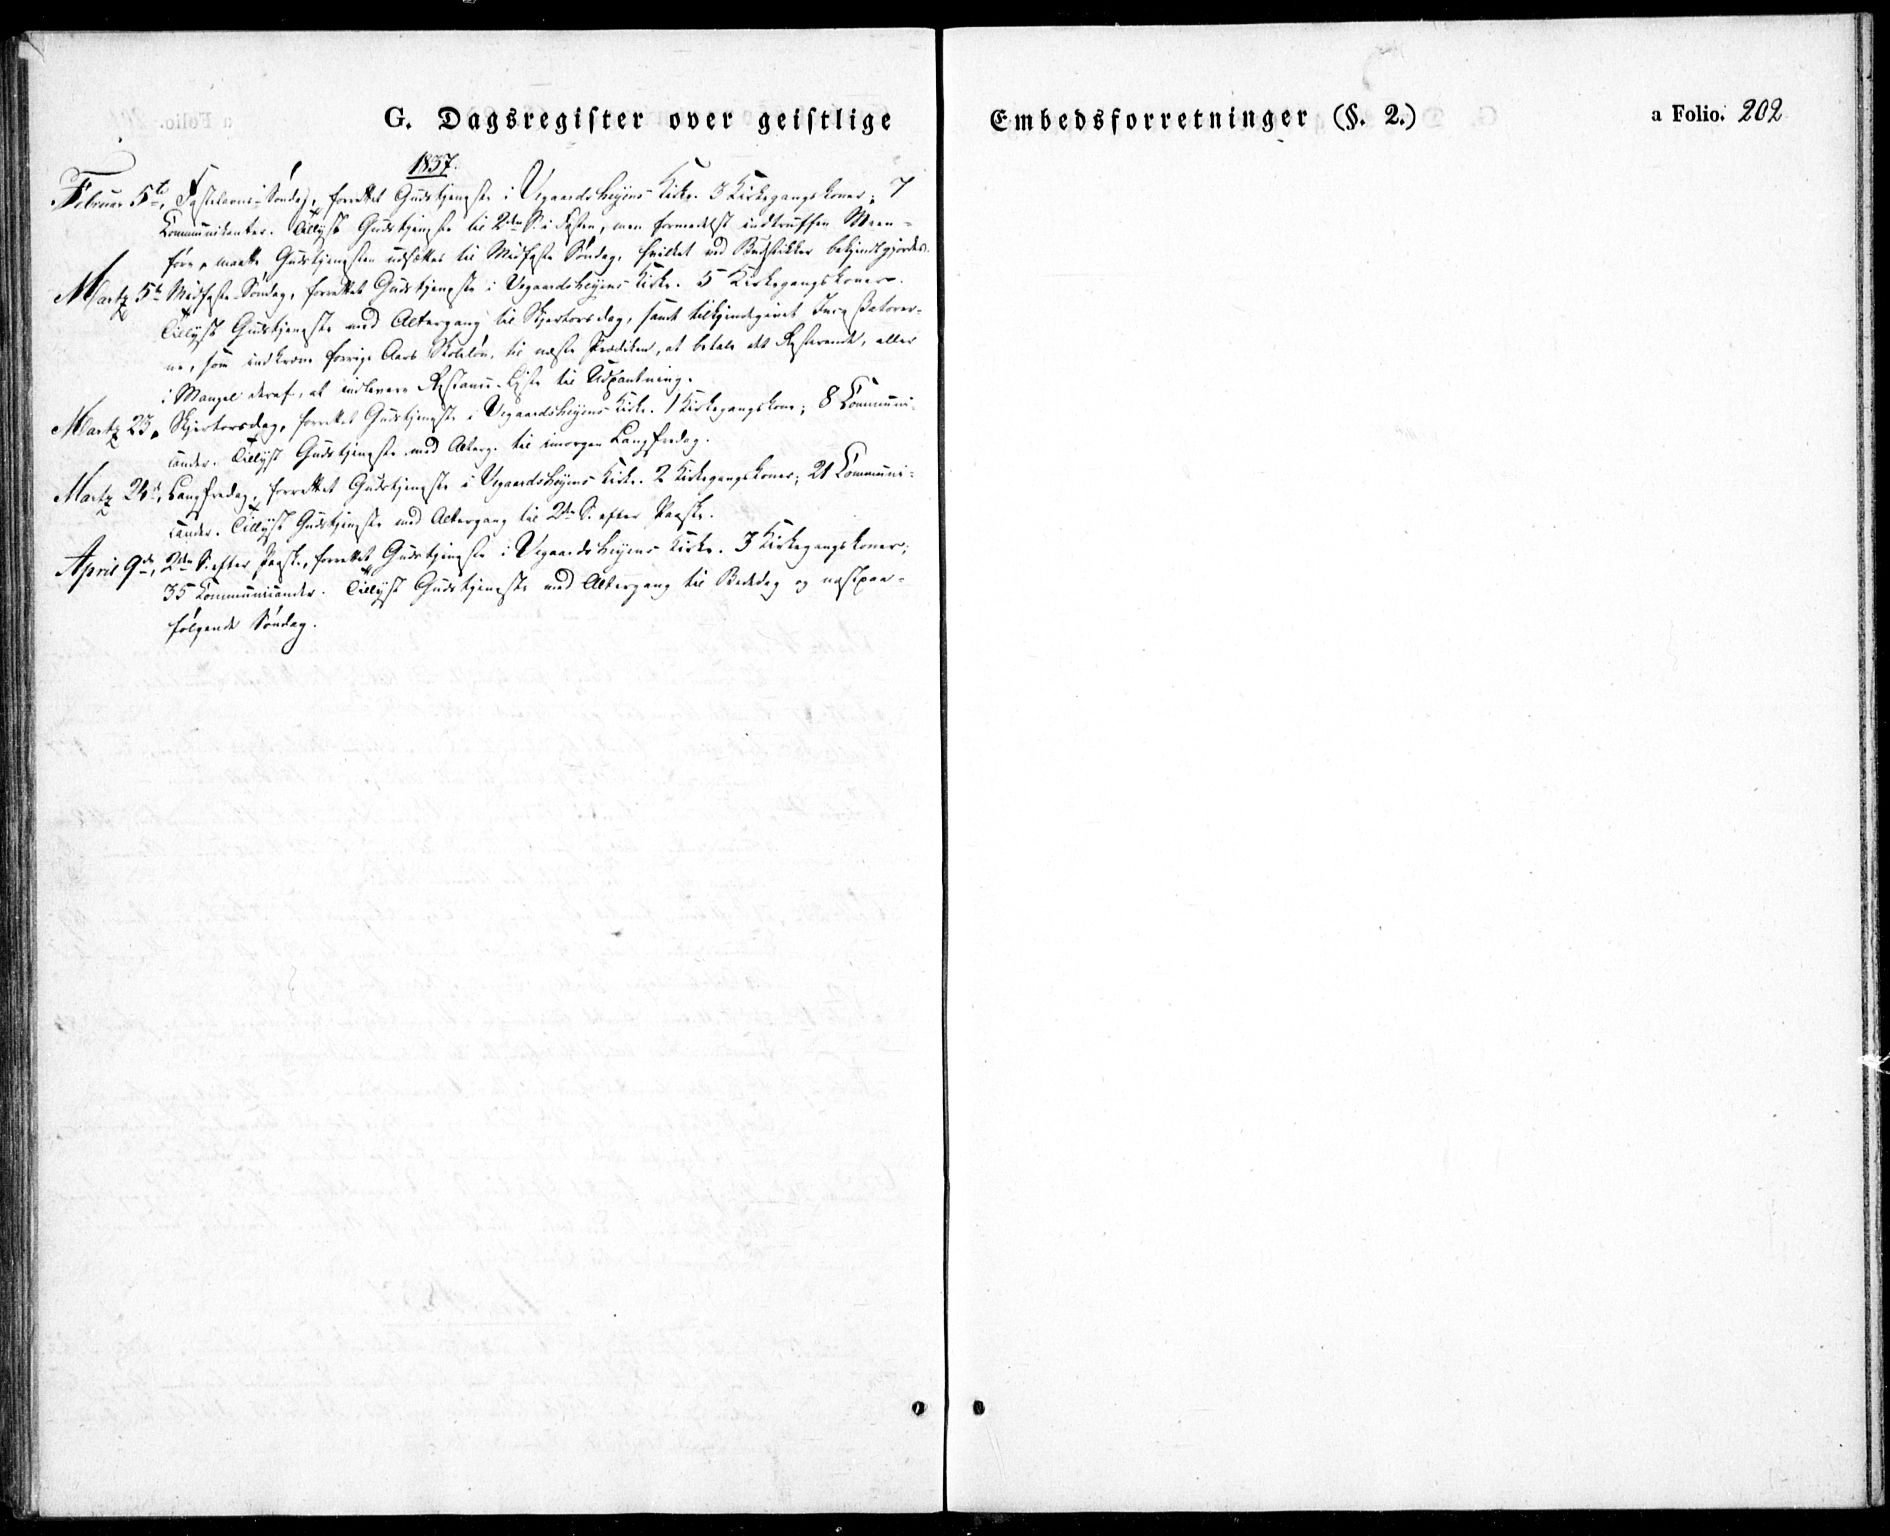 G. Dagsregister over geistlige Embedsforretninger (§. 2.) a Folio. 202
1837.
Februar 5te, Fastelavns-Søndag, forrettet Gudstjeneste i Vegaardsheyens Kirke. 3 Kirkegangskoner; 7
Communikanter. Tillyst Gudstjeneste til 2den S. i Fasten, men formedelst indtruffen Meen-
føre, maatte Gudstjenesten udsættes til Midfaste Søndag, hvilket ved Budstikker bekjendtgjordes.
Martz 5te Midfaste-Søndag, forrettet Gudstjeneste i Vegaardsheyens Kirke. 5 Kirkegangskoner.
Tillyst Gudstjeneste med Altergang til Skjertorsdag, samt tilkjendegivet
ne, som indkræve forrige Aars Skoleløn, til næste Prædiken, at betale det Resterende, eller
i Mangel deraf, at indlevere Restance-Liste til Udpantning.
Martz 23, Skjertorsdag, forrettet Gudstjeneste i Vegaardsheyens Kirke. 1 Kirkegangskone; 8 Communi-
cander. Tillyst Gudstjeneste med Alterg. til imorgen Langfredag.
Martz 24de, Langfredag, forrettet Gudstjeneste i Vegaardsheyens Kirke. 2 Kirkegangskoner; 21 Communi-
cander. Tillyst Gudstjeneste med Altergang til 2den S. efter Paaske.
April 9de, 2den S. efter Paaske, forrettet Gudstjeneste i Vegaardsheyens Kirke. 3 Kirkegangskoner;
35 Communicander. Tillyst Gudstjeneste med Altergang til Bededag og næstpaa-
følgende Søndag.